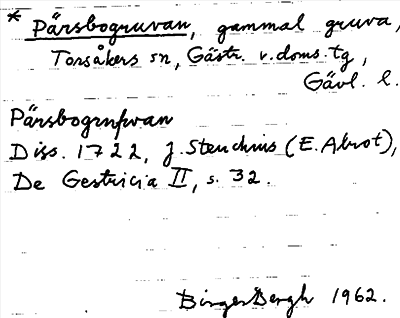 * Pärsbogruvan, gammal gruva,
Torsåkers sn, Gästr. v. doms. tg,
Gävl. l.
Pärsbogrufwan
Diss. 1722, J. Steuchius (E. Alrot),
De Gestricia II, s. 32.
Birger Bergh 1962.